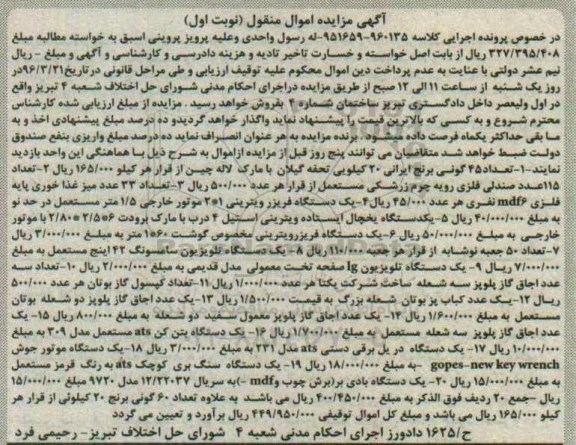 آگهی مزایده اموال منقول (نوبت اول)
در خصوص پرونده اجرایی کلاسه ۹۶۰۱۳۵-۹۵۱۶۵۹-له رسول واحدی وعلیه پرویز پروینی اسبق به خواسته مطالبه مبلغ
۳۲۷/۳۹۵/۴۰۸ ریال از بابت اصل خواسته و خسارت تاخیر تادیه و هزینه دادرسی و کارشناسی و آگهی و مبلغ - ریال
نیم عشر دولتی با عنایت به عدم پرداخت دین اموال محکوم علیه توقیف ارزیابی و طی مراحل قانونی در تاریخ۹۶/۳/۳۱در
روز یک شنبه از ساعت ۱۱ الی ۱۲ صبح از طریق مزایده دراجرای احکام مدنی شورای حل اختلاف شعبه ۴ تبریز واقع
در اول ولیعصر داخل دادگستری تبریز ساختمان شماره ۲ بفروش خواهد رسید . مزایده از مبلغ ارزیابی شده کارشناس
محترم شروع و به کسی که بالاترین قیمت را پیشنهاد نماید واگذار خواهد گردیدو ده درصد مبلغ پیشنهادی اخذ و به
ما بقی حداکثر یکماه فرصت داده میشود . برنده مزایده به هر عنوان انصراف نماید ده درصد مبلغ واریزی بنفع صندوق
دولت ضبط خواهد شد متقاضیان می توانند پنج روز قبل از مزایده ازاموال به شرح ذیل با هماهنگی این واحد بازدید
نمایند-۱-تعداد۴۵ گونی برنج ایرانی ۲۰ کیلویی تحفه گیلان با مارک لاله چین از قرار هر کیلو ۱۶۵/۰۰۰ ریال ۲-تعداد
۱۱۵عدد صندلی فلزی رویه چرم زرشکی مستعمل از قرار هر عدد ۵۰۰/۰۰۰ ریال ۳-تعداد ۳۳ عدد میز غذا خوری پایه
فلزی mdf۶ نفری هر عدد ۴۵/۰۰۰ ریال۴-یک دستگاه فریزر ویترینی ۱*۲ موتور خارجی ۱/۵ متر مستعمل در حد نو
به مبلغ ۴۰/۰۰۰/۰۰۰ ریال ۵-یکدستگاه یخچال ایستاده ویترینی استیل ۴ درب با مارک برودت ۲/۵*۶ ۲/۸۰ با موتور
خارجی به مبلغ ۵۰/۰۰۰/۰۰۰ ریال ۶-یک دستگاه فریزرویترینی مخصوص گوشت ۶۰*۱ متر به مبلغ ۳/۰۰۰/۰۰۰ ریال
۷-تعداد ۵۰ جعبه نوشابه از قرار هر جعبه ۱۱۰/۰۰۰ ریال ۸-یک دستگاه تلویزیون سامسونگ ۴۲ اینچ مستعمل به مبلغ
۷/۰۰۰/۰۰۰ ریال ۹- یک دستگاه تلویزیون lg صفحه تخت معمولی مدل قدیمی به مبلغ ۲/۰۰۰/۰۰۰ ریال ۱۰-تعداد سه
عدد اجاق گاز پلوپز سه شعله ساخت شرکت یکتا هر عدد ۱/۰۰۰/۰۰۰ ریال ۱۱-تعداد کپسول گاز بوتان هر عدد ۵۰۰/۰۰۰
ریال ۱۲-یک عدد کباب پز بوتان شعله بزرگ به قیمت ۱/۵۰۰/۰۰۰ ریال ۱۳-یک عدد اجاق گاز پلوپز دو شعله بوتان
مستعمل به مبلغ ۱/۶۰۰/۰۰۰ ریال ۱۴- یک عدد اجاق گاز پلوپز معمول سفید دو شعله به مبلغ ۸۰۰/۰۰۰ ریال ۱۵- یک
عدد اجاق گاز پلوپز سه شعله مستعمل به مبلغ ۱/۷۰۰/۰۰۰ ریال ۱۶- یک دستگاه بتن کن ats مستعمل مدل ۳۰۹ به مبلغ
۱۰/۰۰۰/۰۰۰ ریال ۱۷- یک دستگاه در یل برقی دستی ats مدل ۲۳۱ به مبلغ ۳/۰۰۰/۰۰۰ ریال ۱۸-یک دستگاه موتور جوش
gopes-new key wrench -به مبلغ ۱۸/۰۰۰/۰۰۰ ریال ۱۹- یک دستگاه سنگ بری کوچک ats به رنگ قرمز مستعمل
به مبلغ ۱۵/۰۰۰/۰۰۰ ریال ۲۰- یک دستگاه بادی بر(برش چوب وmdf -)به سریال ۱۲/۲۲۰۳۷ مدل ۹۷۲۰ مبلغ ۱۵/۰۰۰/۰۰۰
ریال -جمع ۲۰ ردیف فوق الذکر به مبلغ ۴۰۰/۴۵۰/۰۰۰ ریال می باشد به علاوه تعداد ۶۰ گونی برنج ۲۰ کیلوئی از قرار هر
کیلو ۱۶۵/۰۰۰ ریال می باشد و مبلغ کل اموال توقیفی ۴۴۹/۹۵۰/۰۰۰ ریال برآورد و تعیین می گردد
ح/۱۶۲۵ دادورز اجرای احکام مدنی شعبه ۴ شورای حل اختلاف تبریز- رحیمی فرد